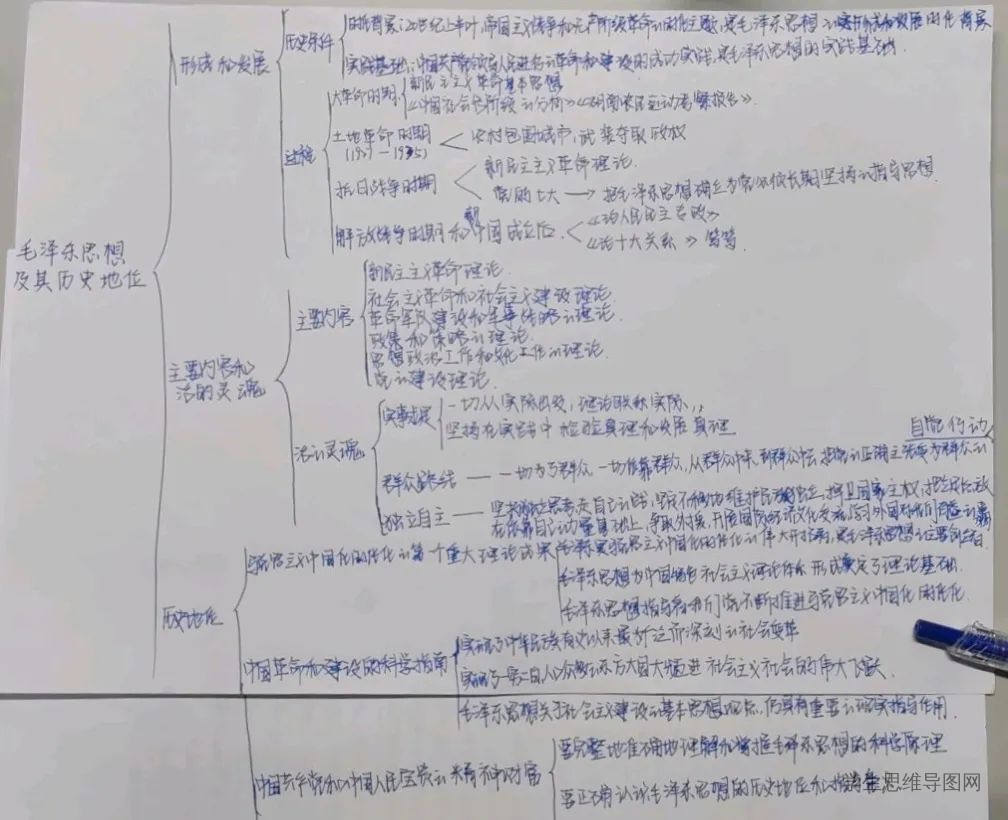 毛泽东思想
及其历史地位
形成和发展
历史条件
时代背景:20世纪上半叶,帝国主义战争和无产阶级革命的时代主题,是毛泽东思想形成和发展的时代背景
实践基础:中国共产党领导人民进行革命和建设的成功实践是毛泽东思想的实践基础.
过程
大革命时期
新民主主义革命基本思想
《中国社会各阶级的分析》《湖南农民运动考察报告》.
土地革命时期
(1927—1935)
农村包围城市,武装夺取政权
抗日战争时期
新民主主义革命理论.
党的七大 → 把毛泽东思想确立为党必须长期坚持的指导思想.
解放战争时期和新中国成立后.
《论人民民主专政》
《论十大关系》等等
主要内容和
活的灵魂
主要内容
新民主主义革命理论.
社会主义革命和社会主义建设理论.
革命军队建设和军事战略的理论.
政策和策略的理论.
思想政治工作和文化工作的理论.
党的建设理论.
活的灵魂
实事求是
一切从实际出发,理论联系实际,
坚持在实践中检验真理和发展真理
自觉行动
群众路线 — 一切为了群众,一切依靠群众,从群众中来,到群众中去,把党的正确主张变为群众的
独立自主 — 坚持独立思考,走自己的路,坚定不移地维护民族独立,捍卫国家主权,把立足点放
在依靠自己力量基础上,争取外援,开展国际经济文化交流,学习外国
历史地位
马克思主义中国化时代化的第一个重大理论成果
马克思主义中国化时代化的伟大开拓者,是毛泽东思想的主要创立者.
毛泽东思想为中国特色社会主义理论体系形成奠定了理论基础.
毛泽东思想指导着我们党不断推进马克思主义中国化时代化.
中国革命和建设的科学指南
实现了中华民族有史以来最广泛而深刻的社会变革
实现了一穷二白、人口众多的东方大国大步迈进社会主义社会的伟大飞跃.
毛泽东思想关于社会主义建设的基本思想观点,仍具有重要的现实指导作用.
中国共产党和中国人民宝贵的精神财富
要完整地准确地理解和掌握毛泽东思想的科学原理
要正确认识毛泽东思想的历史地位和指导
思维导图网